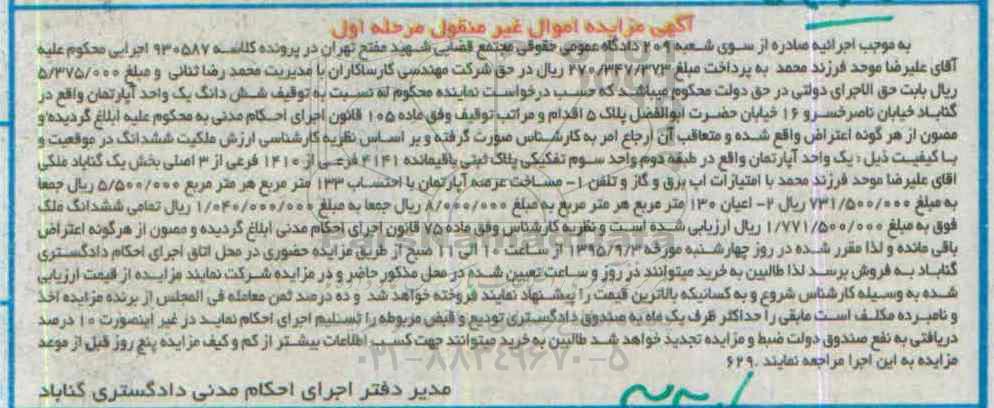 آگهی مزایده اموال غیر منقول مرحله اول
به موجب اجرائیه صادره از سوی شعبه ۲۰۹ دادگاه عمومی حقوقی مجتمع قضایی شهید مفتح تهران در پرونده کلاسه ۹۳۰۵۸۷ اجرایی محکوم علیه
آقای علیرضا موحد فرزند محمد به پرداخت مبلغ ۲۷۰/۳۴۷/۳۷۳ ریال در حق شرکت مهندسی کارساکاران با مدیریت محمد رضا ثنائی و مبلغ ۵/۳۷۵/۰۰۰
ریال بابت حق الاجرای دولتی در حق دولت محکوم میباشد که حسب درخواست نماینده محکوم له نسبت به توقیف شش دانگ یک واحد آپارتمان واقع در
گناباد خیابان ناصرخسرو ۱۶ خیابان حضرت ابوالفضل پلاک ۵ اقدام و مراتب توقیف وفق ماده ۱۰۵ قانون اجرای احکام مدنی به محکوم علیه ابلاغ گردیده و
مصون از هر گونه اعتراض واقع شده و متعاقب آن ارجاع امر به کارشناس صورت گرفته و بر اساس نظریه کارشناسی ارزش ملکیت ششدانگ در موقعیت و
با کیفیت ذیل : یک واحد آپارتمان واقع در طبقه دوم واحد سوم تفکیکی پلاک ثبتی باقیمانده ۴۱۴۱ فرعی از ۱۴۱۰ فرعی از ۳ اصلی بخش یک گناباد ملکی
اقای علیرضا موحد فرزند محمد با امتیازات اب برق و گاز و تلفن ۱- مساحت عرصه آپارتمان با احتساب ۱۳۳ متر مربع هر متر مربع ۵/۵۰۰/۰۰۰ ریال جمعا
به مبلغ ۷۳۱/۵۰۰/۰۰۰ ریال ۲- اعیان ۱۳۰ متر مربع هر متر مربع به مبلغ ۸/۰۰۰/۰۰۰ ریال جمعا به مبلغ ۱/۰۴۰/۰۰۰/۰۰۰ ریال تمامی ششدانگ ملک
فوق به مبلغ ۱/۷۷۱/۵۰۰/۰۰۰ ریال ارزیابی شده است و نظریه کارشناس وفق ماده ۷۵ قانون اجرای احکام مدنی ابلاغ گردیده و مصون از هرگونه اعتراض
باقی مانده و لذا مقرر شده در روز چهارشنبه مورخه ۱۳۹۵/۹/۳ از ساعت ۱۰ الی ۱۱ صبح از طریق مزایده حضوری در محل اتاق اجرای احکام دادگستری
گناباد به فروش برسد لذا طالبین به خرید میتوانند در روز و ساعت تعیین شده در محل مذکور حاضر و در مزایده شرکت نمایند مزایده از قیمت ارزیابی
شده به وسیله کارشناس شروع و به کسانیکه بالاترین قیمت را پیشنهاد نمایند فروخته خواهد شد و ده درصد ثمن معامله فی المجلس از برنده مزایده اخذ
و نامبرده مکلف است مابقی را حداکثر ظرف یک ماه به صندوق دادگستری تودیع و قبض مربوطه را تسلیم اجرای احکام نماید در غیر اینصورت ۱۰ درصد
دریافتی به نفع صندوق دولت ضبط و مزایده تجدید خواهد شد طالبین به خرید میتوانند جهت کسب اطلاعات بیشتر از کم و کیف مزایده پنج روز قبل از موعد
مزایده به این اجرا مراجعه نمایند . ۶۲۹
۰۲۱-۸۸۳۴۹۶۷۰-۵
مدیر دفتر اجرای احکام مدنی دادگستری گناباد